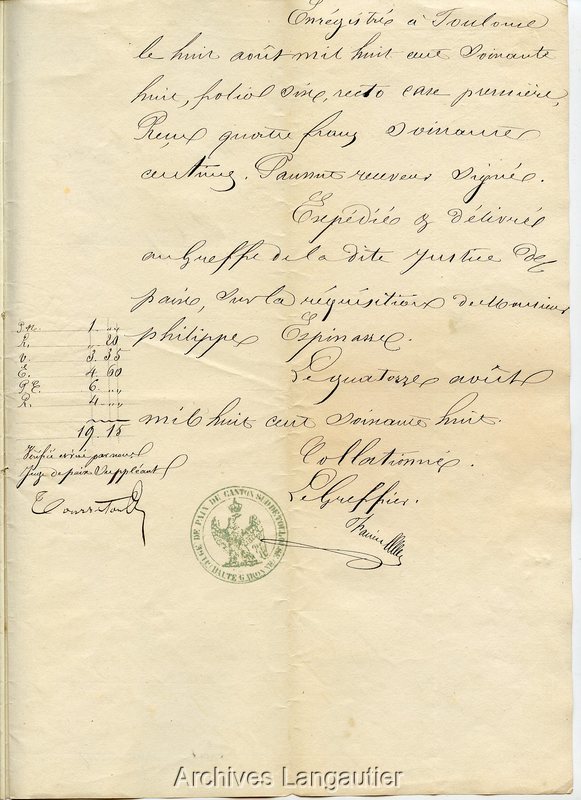 Enrégistré à Toulouse
le huit août mil huit cent soixante
huit, folio six, recto case première,
Reçu quatre francs soixante
centimes. receveur signé.
Expédié & délivré
au Greffe de la dite Justice de
paix, sur la réquisition de Monsieur
philippe Espinasse.
Le quatorze août
mil huit cent soixante huit.
Collationné.
Le Greffier.
1. "
" 20
V. 3. 35
E. 4. 60
6. "
R. 4. "
19. 15
Vérifié et visé par nous
Juge de paix Suppléant
JUSTICE DE PAIX DE CANTON SUD DE TOULOUSE
HAUTE GARONNE
Archives Langautier